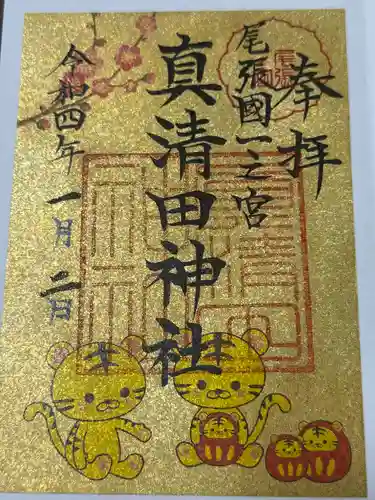 奉拝
尾張國一之宮
真清田神社
令和四年一月二日